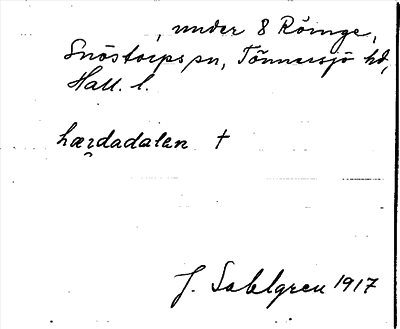 , under 8 Röinge,
Snöstorps sn, Tönnersjö hd,
Hall. l.
hærdadalen †
J. Sahlgren 1917